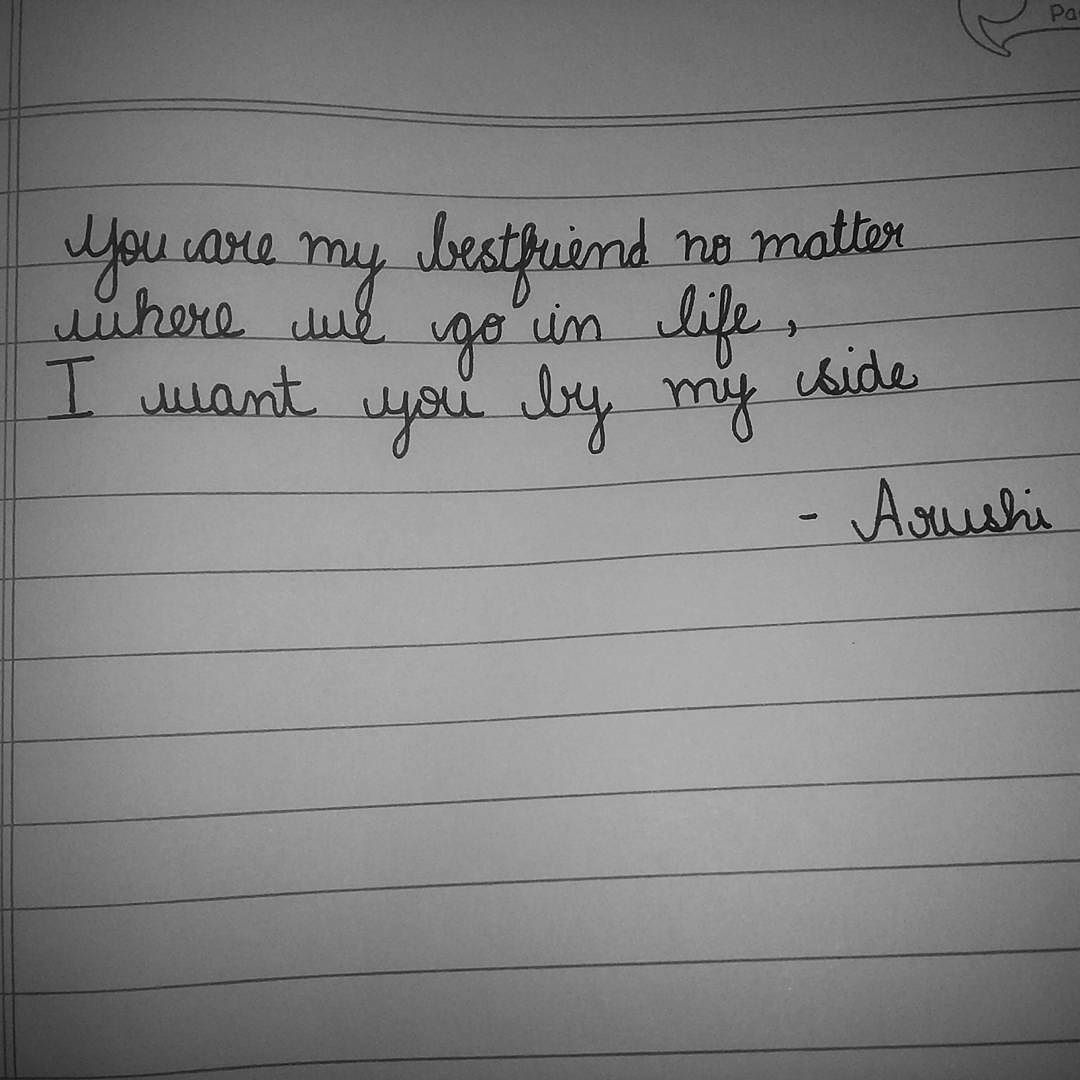 Pa
You are my bestfriend no matter
where we go in life,
I want you by my side
- Arushi